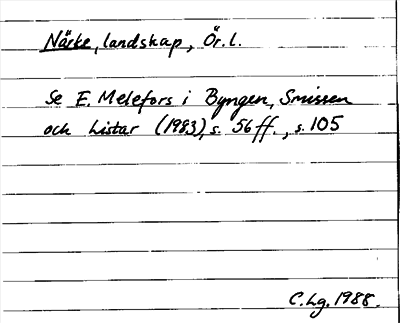 Närke, landskap, Ör. l.
Se E. Melefors i Byngen, Snissen
och Listar (1983), s. 56 ff., s. 105
C. Lg. 1988.